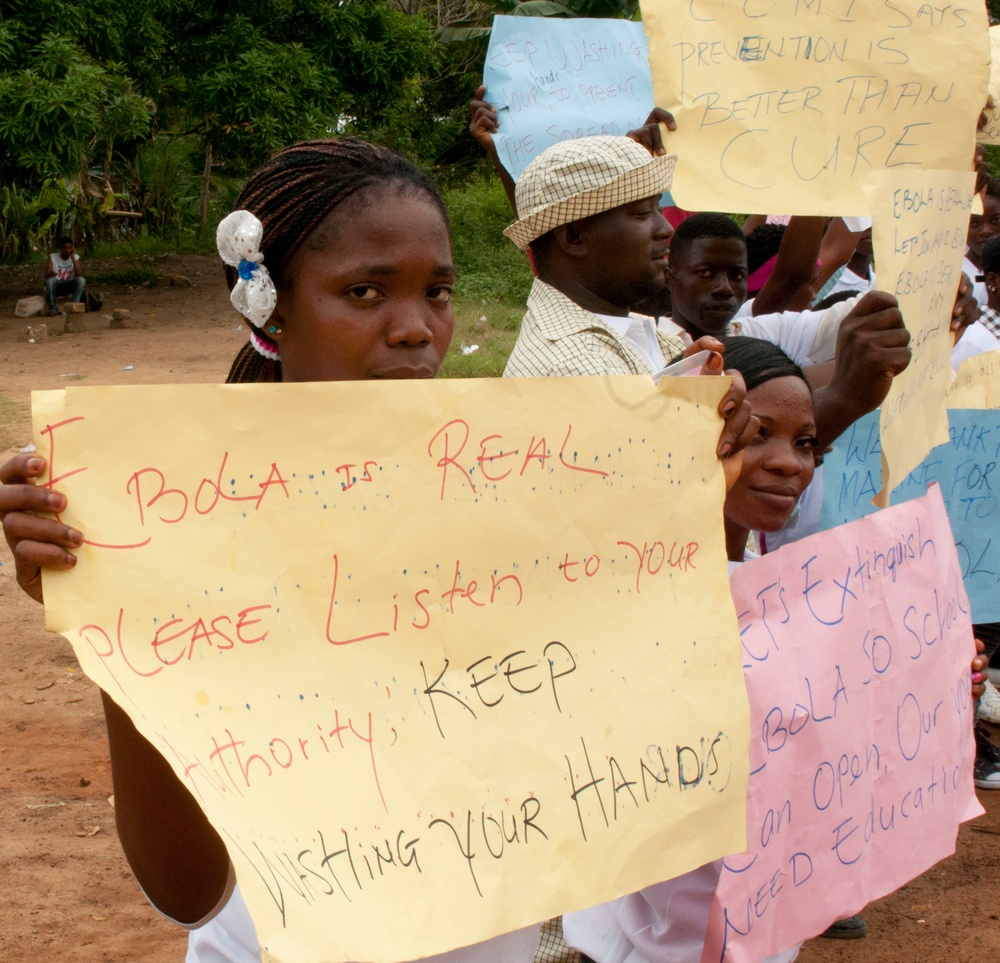 EBOLA IS REAL
PLEASE Listen to YOUR
Authority, KEEP
WASHING YOUR HANDS
KEEP WASHING
YOUR hands TO PREVENT
THE SPREAD
C.C.M.I SAYS
PREVENTION IS
BETTER THAN
CURE
EBOLA IS REAL
EBOLA
LET'S Extinguish
EBOLA SO School
Can Open, Our
NEED Education
WE THANK
FOR
TO